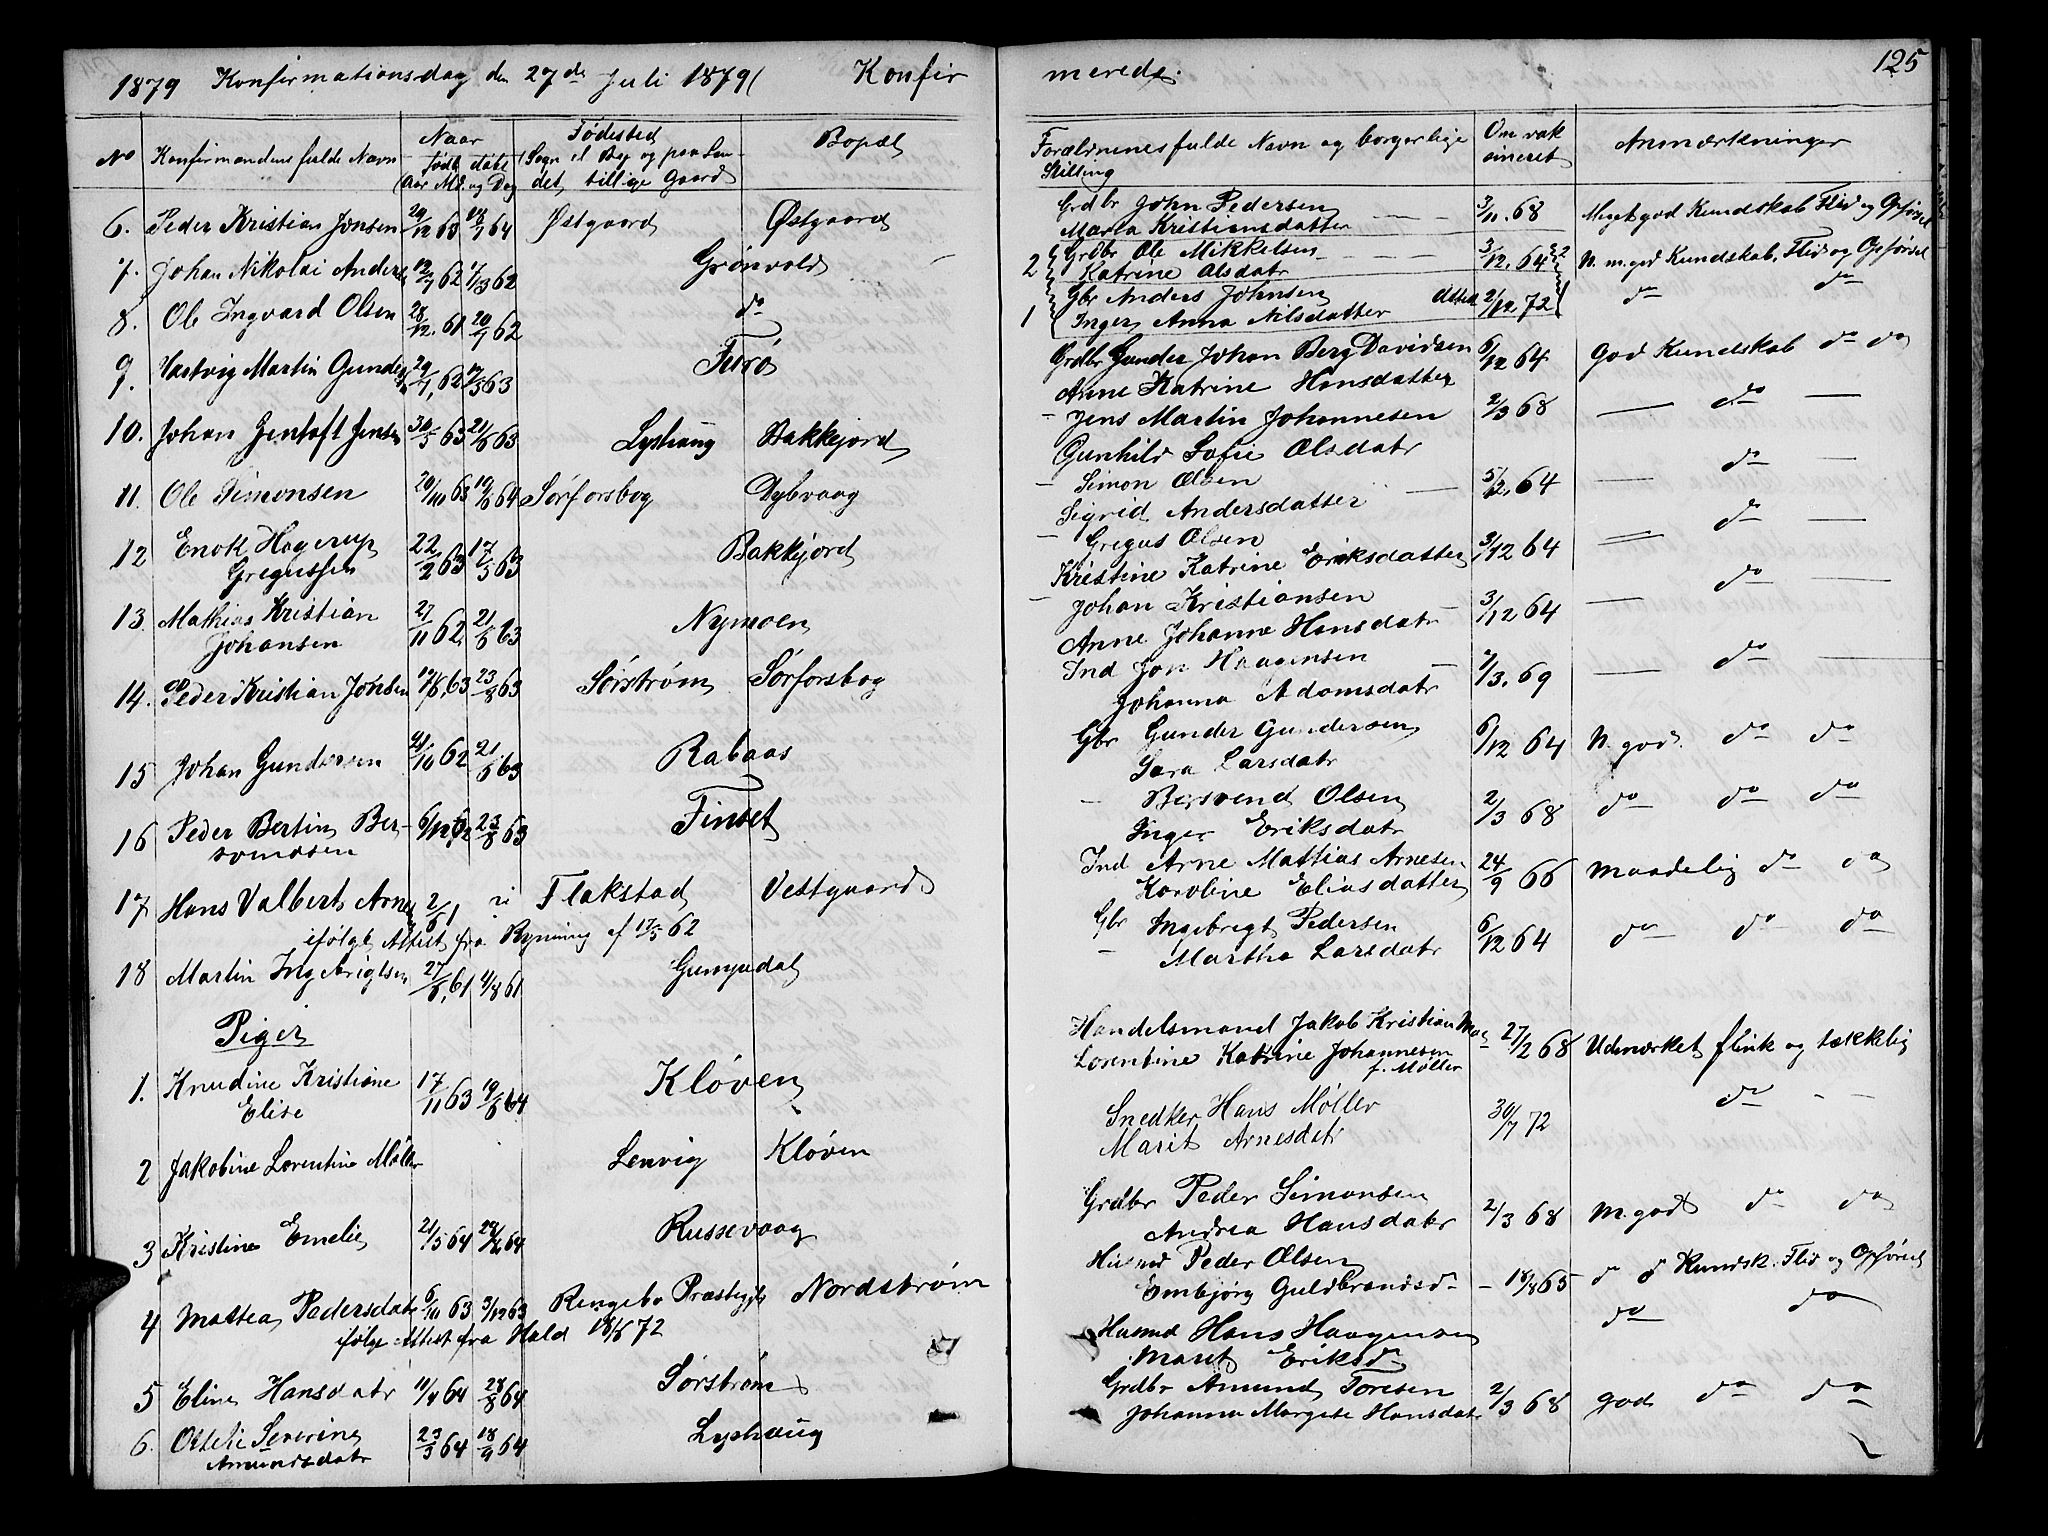 1879 Konfirmationsdag den 27de Juli 1879 Konfir
No Konfirmandens fulde Navn Naar født døbt Aar Md. og Dag Fødested (Sogn el By og paa Lan- det tillige Gaard) Bopæl
6. Peder Kristian Jonsen 29/12 63 18/7 64 Østgaard Østgaard
7. Johan Nikolai Anders 62 62 Grønvold
8. Ole Ingvard Olsen 28/12. 61 20/7 62 do
9. Hartvig Martin Gunders 62 63 Furø
10. Johan Gentoft Jensen 30/5 63 21/6 63 Lyshaug Bakkejord
11. Ole Simonsen 20/10 63 19/6 64 Sørforsbog Dybvaag
12 Enok Hagerup 22/2 63 17/5 63 Bakkejord
Gregussen
13. Mathias Kristian 27/11 62 21/6 63 Nymoen
Johansen
14. Peder Kristian Jonsen 63 23/8 63 Sørstrøm Sørforsbog
15 Johan Gundersen 62 21/6 63 Rabaas
16 Peder Bertin Ber- 6/12 62 23/8 63 Finset
svendsen
17 Hans Valbert Arnes 61 Flakstad Vestgaard
ifølge Attest fra Rynning af 17/5 62
18 Martin Ingebrigtsen 27/6. 61 61 Gumpedal
Piger
1. Knudine Kristiane 17/11 63 19/6 64 Kløven
Elise
2 Jakobine Lorentine Møller Lenvig Kløven
3 Kristine Emelie 21/5 64 64 Russevaag
4 Mattea Pedersdatr 6/11 63 3/12 63 Ringebo Præstegjld Nordstrøm
ifølge Attest fra Hald 18/6 72
5 Eline Hansdatr 64 28/8 64 Sørstrøm
6. Ottelie Severine 23/3 64 18/9 64 Lyshaug
Amundsdatr
125
merede.
Forældrenes fulde Navn og borgerlige Stilling Om vak cineret Anmærkninger
Grdbr John Pedersen 3/11. 68 Meget god Kundskab Flid og Opførsel
Marta Kristiansdatter
2 Grdbr Ole Mikkelsen 3/12. 64 2 N. m. god Kundskab, Flid og Opførsel
Katrine Olsdatr
1 Gbr Anders Johnsen Attest 2/12. 72 1 do do
Inger Anna Nilsdatter
Grdbr Gunder Johan Berg Davidsen 6/12 64 God Kundskab do do
Anne Katrine Hansdatter
- Jens Martin Johannesen 2/3 68 do
Gunhild Sofie Olsdatr
- Simon Olsen 5/12. 64 do
Sigrid Andersdatter
- Gregus Olsen 3/12 64 do
Kristine Katrine Eriksdatter
- Johan Kristiansen 3/12 64 do
Anne Johanne Hansdatr
Ind Jon Haagensen 69 do
Johanna Adamsdatr
Gbr Gunder Gundersen 6/12 64 N. god. do do
Sara Larsdatr
- Bersvend Olsen 2/3 68 do do do
Inger Eriksdatr
Ind Arne Mattias Arnesen 24/9 66 maadelig do do
Karoline Eliasdatter
Gbr Ingebrigt Pedersen 6/12 64 do do do
- Martha Larsdatr
Handelsmand Jakob Kristian 27/2 68 Udmærket flink og tækkelig
Lorentine Katrine Johannesen
f. Møller
Snedker Hans Møller 30/7 72 do
Marit Arnesdatr
Grdbr Peder Simonsen 2/3 68 M. god do do
Andrea Hansdatr
Husmd Peder Olsen
Embjørg Guldbrandsd - 18/8 65 do d Kundsk. Flid og Opførsel
Husmd Hans Haagensen do do
Maret Eriksd
Grdbr Amund Toresen 2/3 68 god do do
Johanna Margete Hansdatr